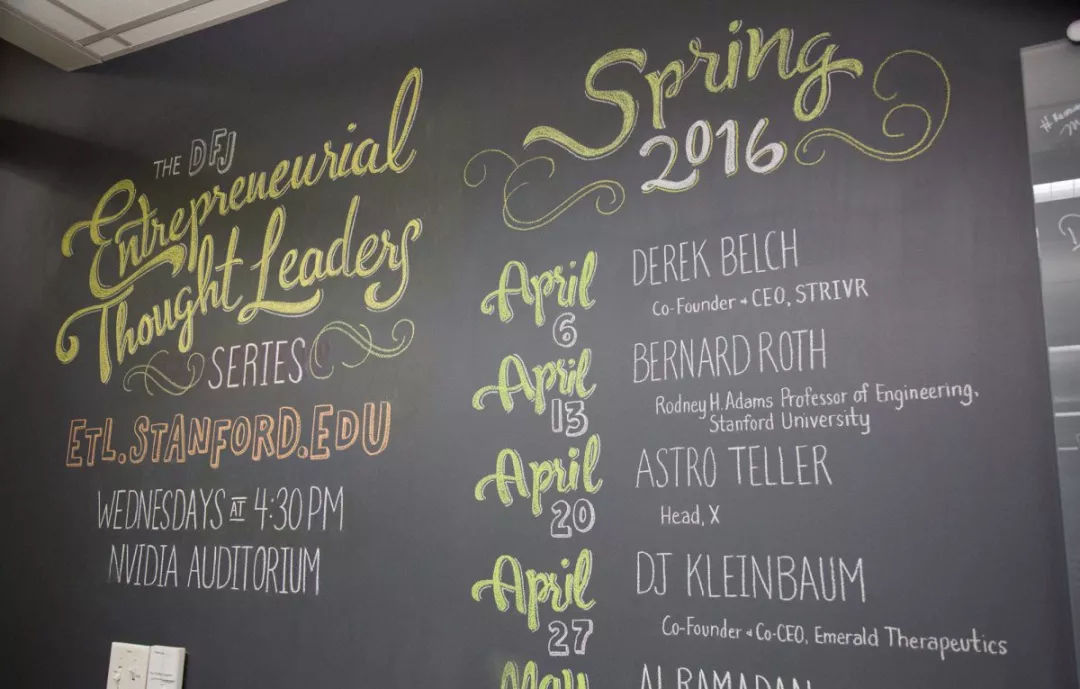 THE DFJ
Entrepreneurial
Thought Leaders
SERIES
ETL.STANFORD.EDU
WEDNESDAYS AT 4:30 PM
NVIDIA AUDITORIUM
Spring
2016
April
6
DEREK BELCH
Co-Founder + CEO, STRIVR
April
13
BERNARD ROTH
Rodney H. Adams Professor of Engineering,
Stanford University
April
20
ASTRO TELLER
Head, X
April
27
DJ KLEINBAUM
Co-Founder + Co-CEO, Emerald Therapeutics
May
AL RAMADAN